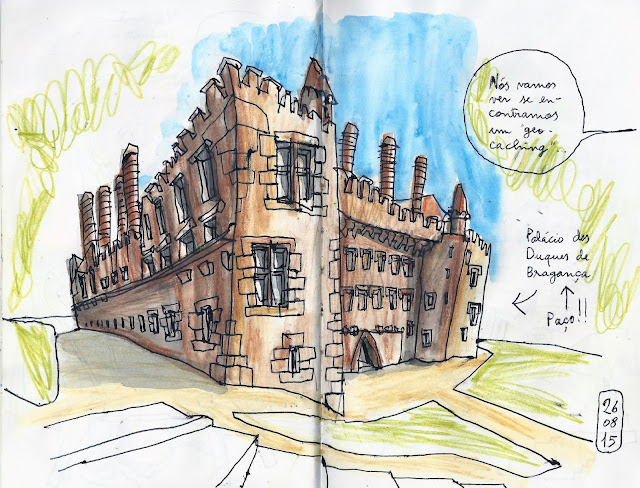 Nós vamos
ver se en-
contramos
um "geo-
caching"...
Palácio dos
Duques de
Bragança
Paço!!
26
08
15